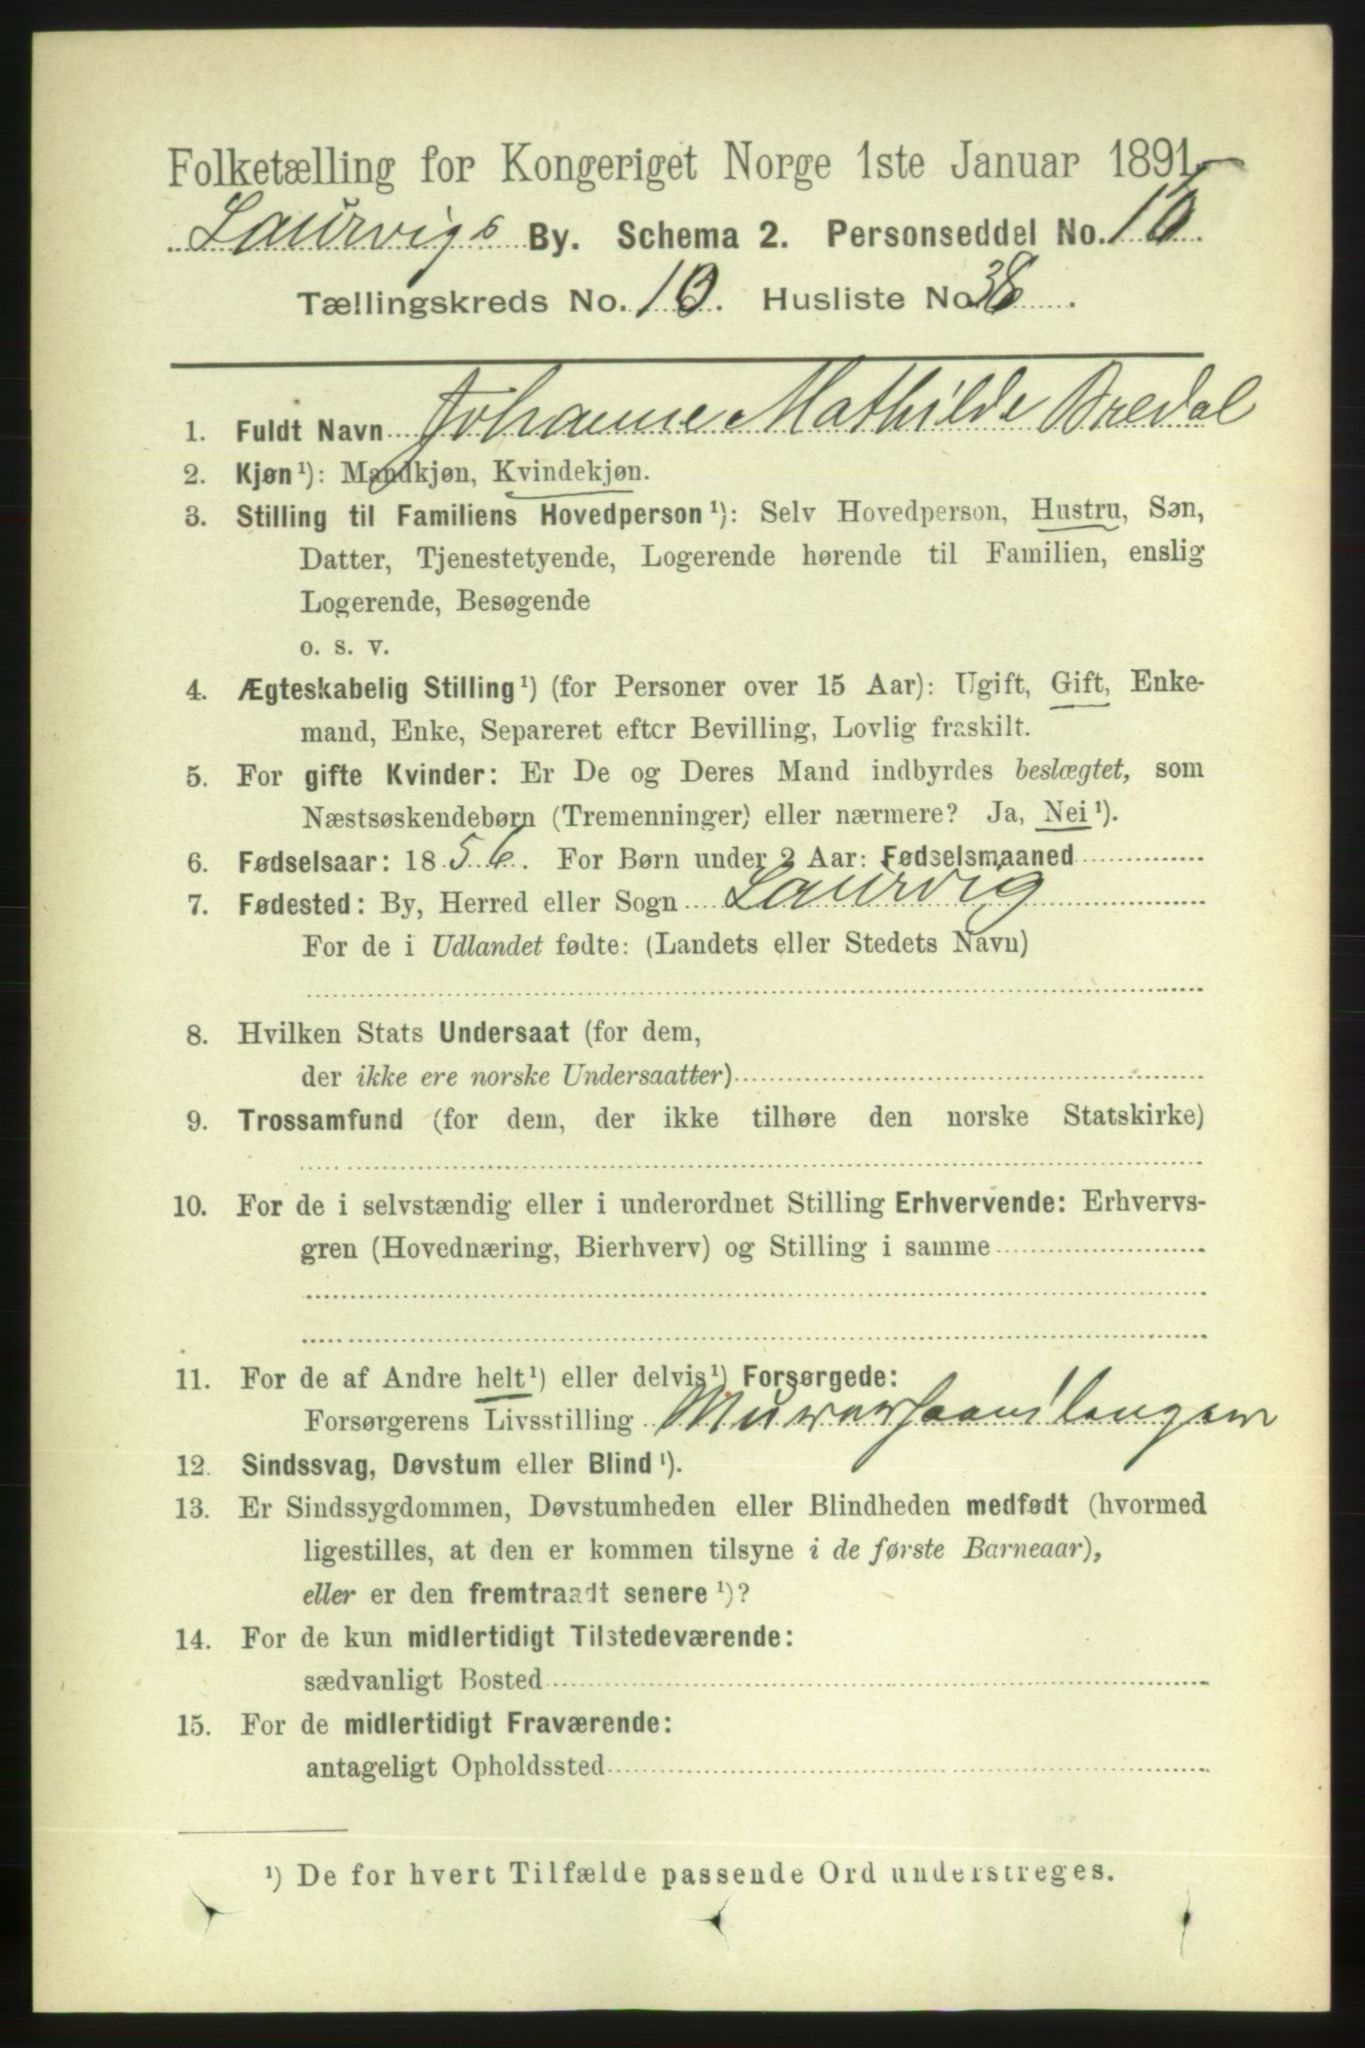 Folketælling for Kongeriget Norge 1ste Januar 1891.
Laurvigs By. Schema 2. Personseddel No. 16.
Tællingskreds No. 10. Husliste No. 38.
1. Fuldt Navn Johanne Mathilde Bredal
2. Kjøn¹): Mandkjøn, Kvindekjøn.
3. Stilling til Familiens Hovedperson¹): Selv Hovedperson, Hustru, Søn,
Datter, Tjenestetyende, Logerende hørende til Familien, enslig
Logerende, Besøgende
o. s. v.
4. Ægteskabelig Stilling¹) (for Personer over 15 Aar): Ugift, Gift, Enke-
mand, Enke, Separeret efter Bevilling, Lovlig fraskilt.
5. For gifte Kvinder: Er De og Deres Mand indbyrdes beslægtet, som
Næstsøskendebørn (Tremenninger) eller nærmere? Ja, Nei¹).
6. Fødselsaar: 1856. For Børn under 2 Aar: Fødselsmaaned
7. Fødested: By, Herred eller Sogn Laurvig
For de i Udlandet fødte: (Landets eller Stedets Navn)
8. Hvilken Stats Undersaat (for dem,
der ikke ere norske Undersaatter)
9. Trossamfund (for dem, der ikke tilhøre den norske Statskirke)
10. For de i selvstændig eller i underordnet Stilling Erhvervende: Erhvervs-
gren (Hovednæring, Bierhverv) og Stilling i samme
11. For de af Andre helt¹) eller delvis¹) Forsørgede:
Forsørgerens Livsstilling Murerhaandlanger
12. Sindssvag, Døvstum eller Blind¹).
13. Er Sindssygdommen, Døvstumheden eller Blindheden medfødt (hvormed
ligestilles, at den er kommen tilsyne i de første Barneaar),
eller er den fremtraadt senere¹)?
14. For de kun midlertidigt Tilstedeværende:
sædvanligt Bosted
15. For de midlertidigt Fraværende:
antageligt Opholdssted
¹) De for hvert Tilfælde passende Ord understreges.